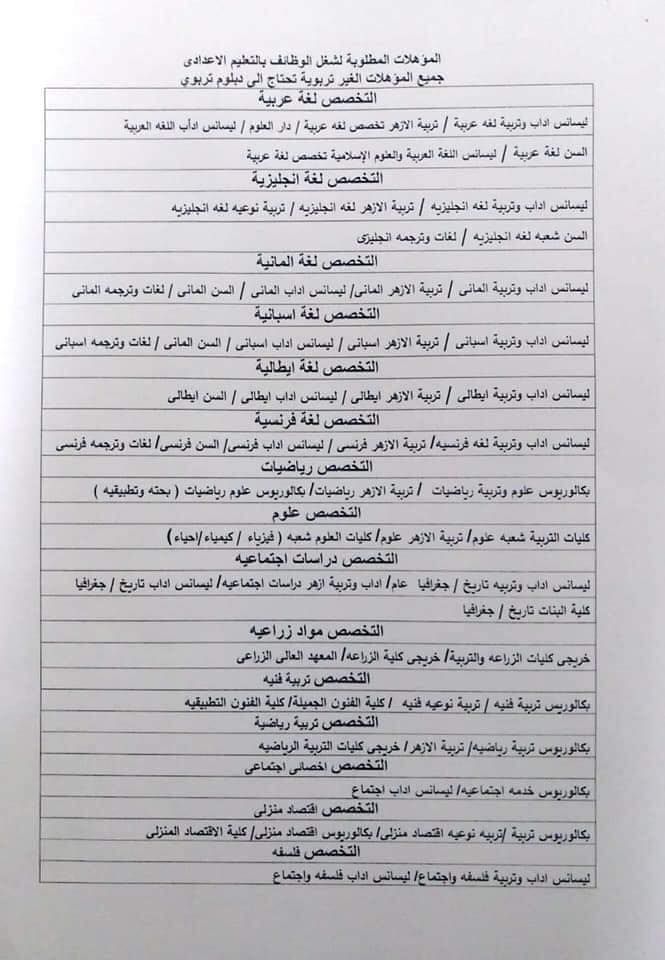 المؤهلات المطلوبة لشغل الوظائف بالتعليم الاعدادى
جميع المؤهلات الغير تربوية تحتاج الى دبلوم تربوي
التخصص لغة عربية
ليسانس اداب وتربية لغه عربية / تربية الازهر تخصص لغه عربية / دار العلوم / ليسانس اداب اللغه العربية
السن لغة عربية / ليسانس اللغة العربية والعلوم الإسلامية تخصص لغة عربية
التخصص لغة انجليزية
ليسانس اداب وتربية لغه انجليزيه / تربية الازهر لغه انجليزيه / تربية نوعيه لغه انجليزيه
السن شعبه لغه انجليزيه / لغات وترجمه انجليزى
التخصص لغة المانية
ليسانس اداب وتربية المانى / تربية الازهر المانى/ ليسانس اداب المانى / السن المانى / لغات وترجمه المانى
التخصص لغة اسبانية
ليسانس اداب وتربية اسبانى / تربية الازهر اسبانى / ليسانس اداب اسبانى / السن المانى / لغات وترجمه اسبانى
التخصص لغة ايطالية
ليسانس اداب وتربية ايطالى / تربية الازهر ايطالى / ليسانس اداب ايطالى / السن ايطالى
التخصص لغة فرنسية
ليسانس اداب وتربية لغه فرنسيه/ تربية الازهر فرنسى / ليسانس اداب فرنسى/ السن فرنسى/ لغات وترجمه فرنسى
التخصص رياضيات
بكالوريوس علوم وتربية رياضيات / تربية الازهر رياضيات/ بكالوريوس علوم رياضيات ( بحته وتطبيقيه )
التخصص علوم
كليات التربية شعبه علوم/ تربية الازهر علوم/ كليات العلوم شعبه ( فيزياء / كيمياء/احياء)
التخصص دراسات اجتماعيه
ليسانس اداب وتربيه تاريخ / جغرافيا عام/ اداب وتربية ازهر دراسات اجتماعيه/ ليسانس اداب تاريخ / جغرافيا
كلية البنات تاريخ / جغرافيا
التخصص مواد زراعيه
خريجى كليات الزراعه والتربية/ خريجى كلية الزراعه/ المعهد العالى الزراعى
التخصص تربية فنيه
بكالوريس تربية فنيه / تربية نوعيه فنيه / كلية الفنون الجميلة/ كلية الفنون التطبيقيه
التخصص تربية رياضية
بكالوريوس تربية رياضيه/ تربية الازهر/ خريجى كليات التربية الرياضيه
التخصص اخصائى اجتماعى
بكالوريوس خدمه اجتماعيه/ ليسانس اداب اجتماع
التخصص اقتصاد منزلى
بكالوريوس تربية /تربيه نوعيه اقتصاد منزلى/ بكالوريوس اقتصاد منزلى/ كلية الاقتصاد المنزلى
التخصص فلسفه
ليسانس اداب وتربية فلسفه واجتماع/ ليسانس اداب فلسفه واجتماع